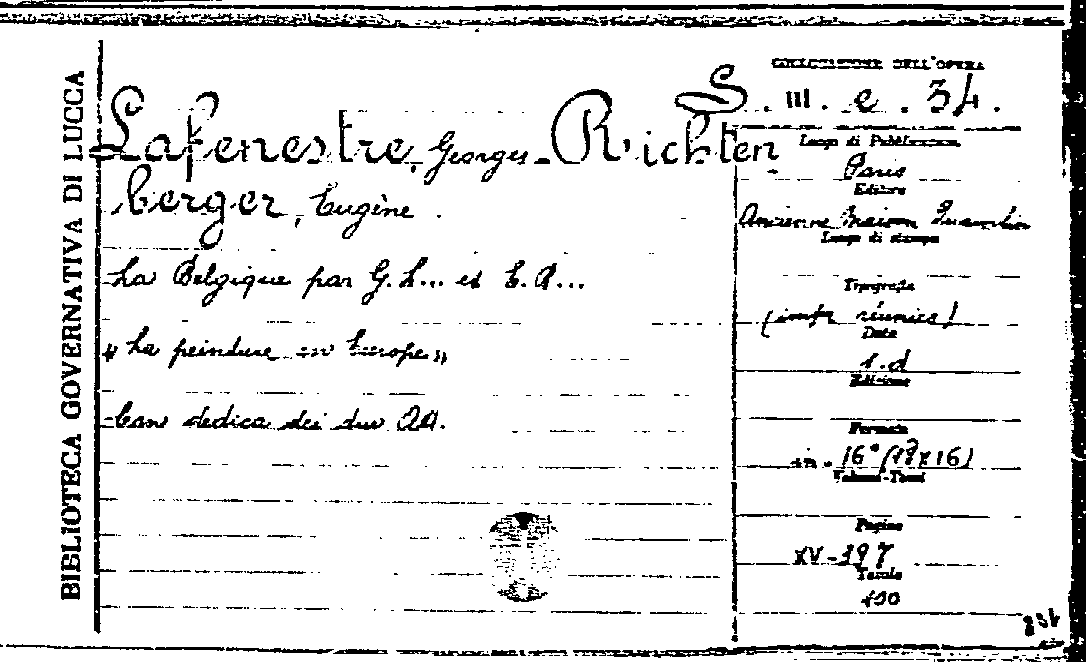 BIBLIOTECA GOVERNATIVA DI LUCCA
Lafenestre, Georges - Richten
berger, Eugène.
La Belgique par G. L... et E. R...
"La peinture en Europe"
Con dedica dei due AA.
COLLOCAZIONE DELL'OPERA
S. III. e. 34.
Luogo di Pubblicazione
Paris
Editore
Ancienne Maison Quantin
Luogo di stampa
Tipografia
(impr. réunies)
Data
s.d
Edizione
Formato
in. 16°
Volumi-Tomi
Pagine
XV-397
Tavole
100